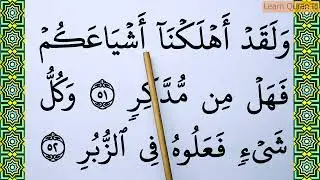 Learn Quran
وَلَقَدْ أَهْلَكْنَآ أَشْيَاعَكُمْ
فَهَلْ مِن مُّدَّكِرٍ ٥١ وَكُلُّ
شَىْءٍ فَعَلُوهُ فِى ٱلزُّبُرِ ٥٢